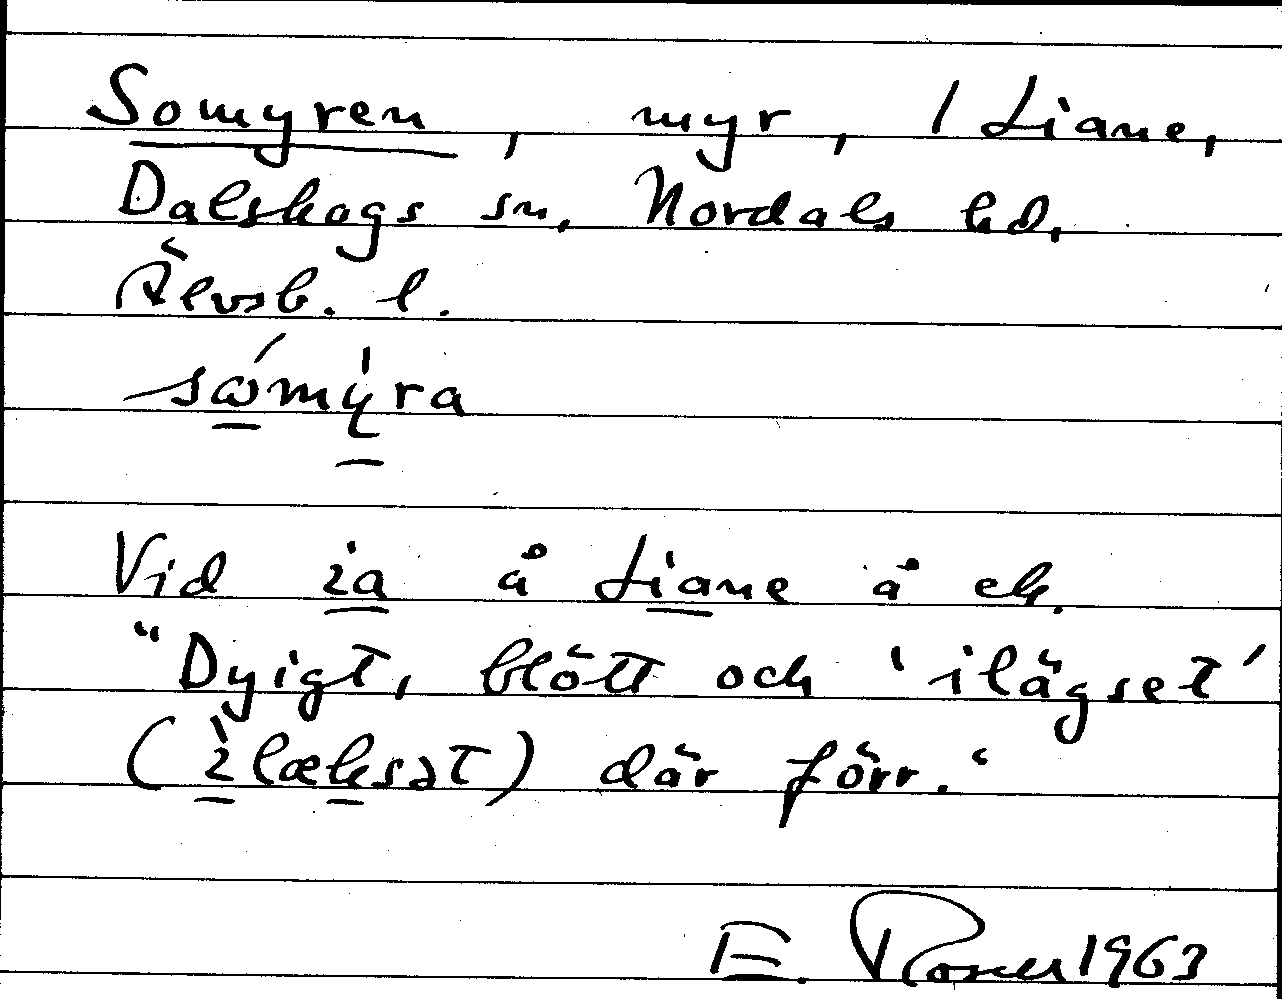 Somyren, myr, 1 Liane,
Dalskogs sn, Nordals hd,
Älvsb. l.
sómy̍ra
Vid ia å Liane å ek.
"Dyigt, blött och 'ilägset'
(ìlæksət) där förr."
E. 1963